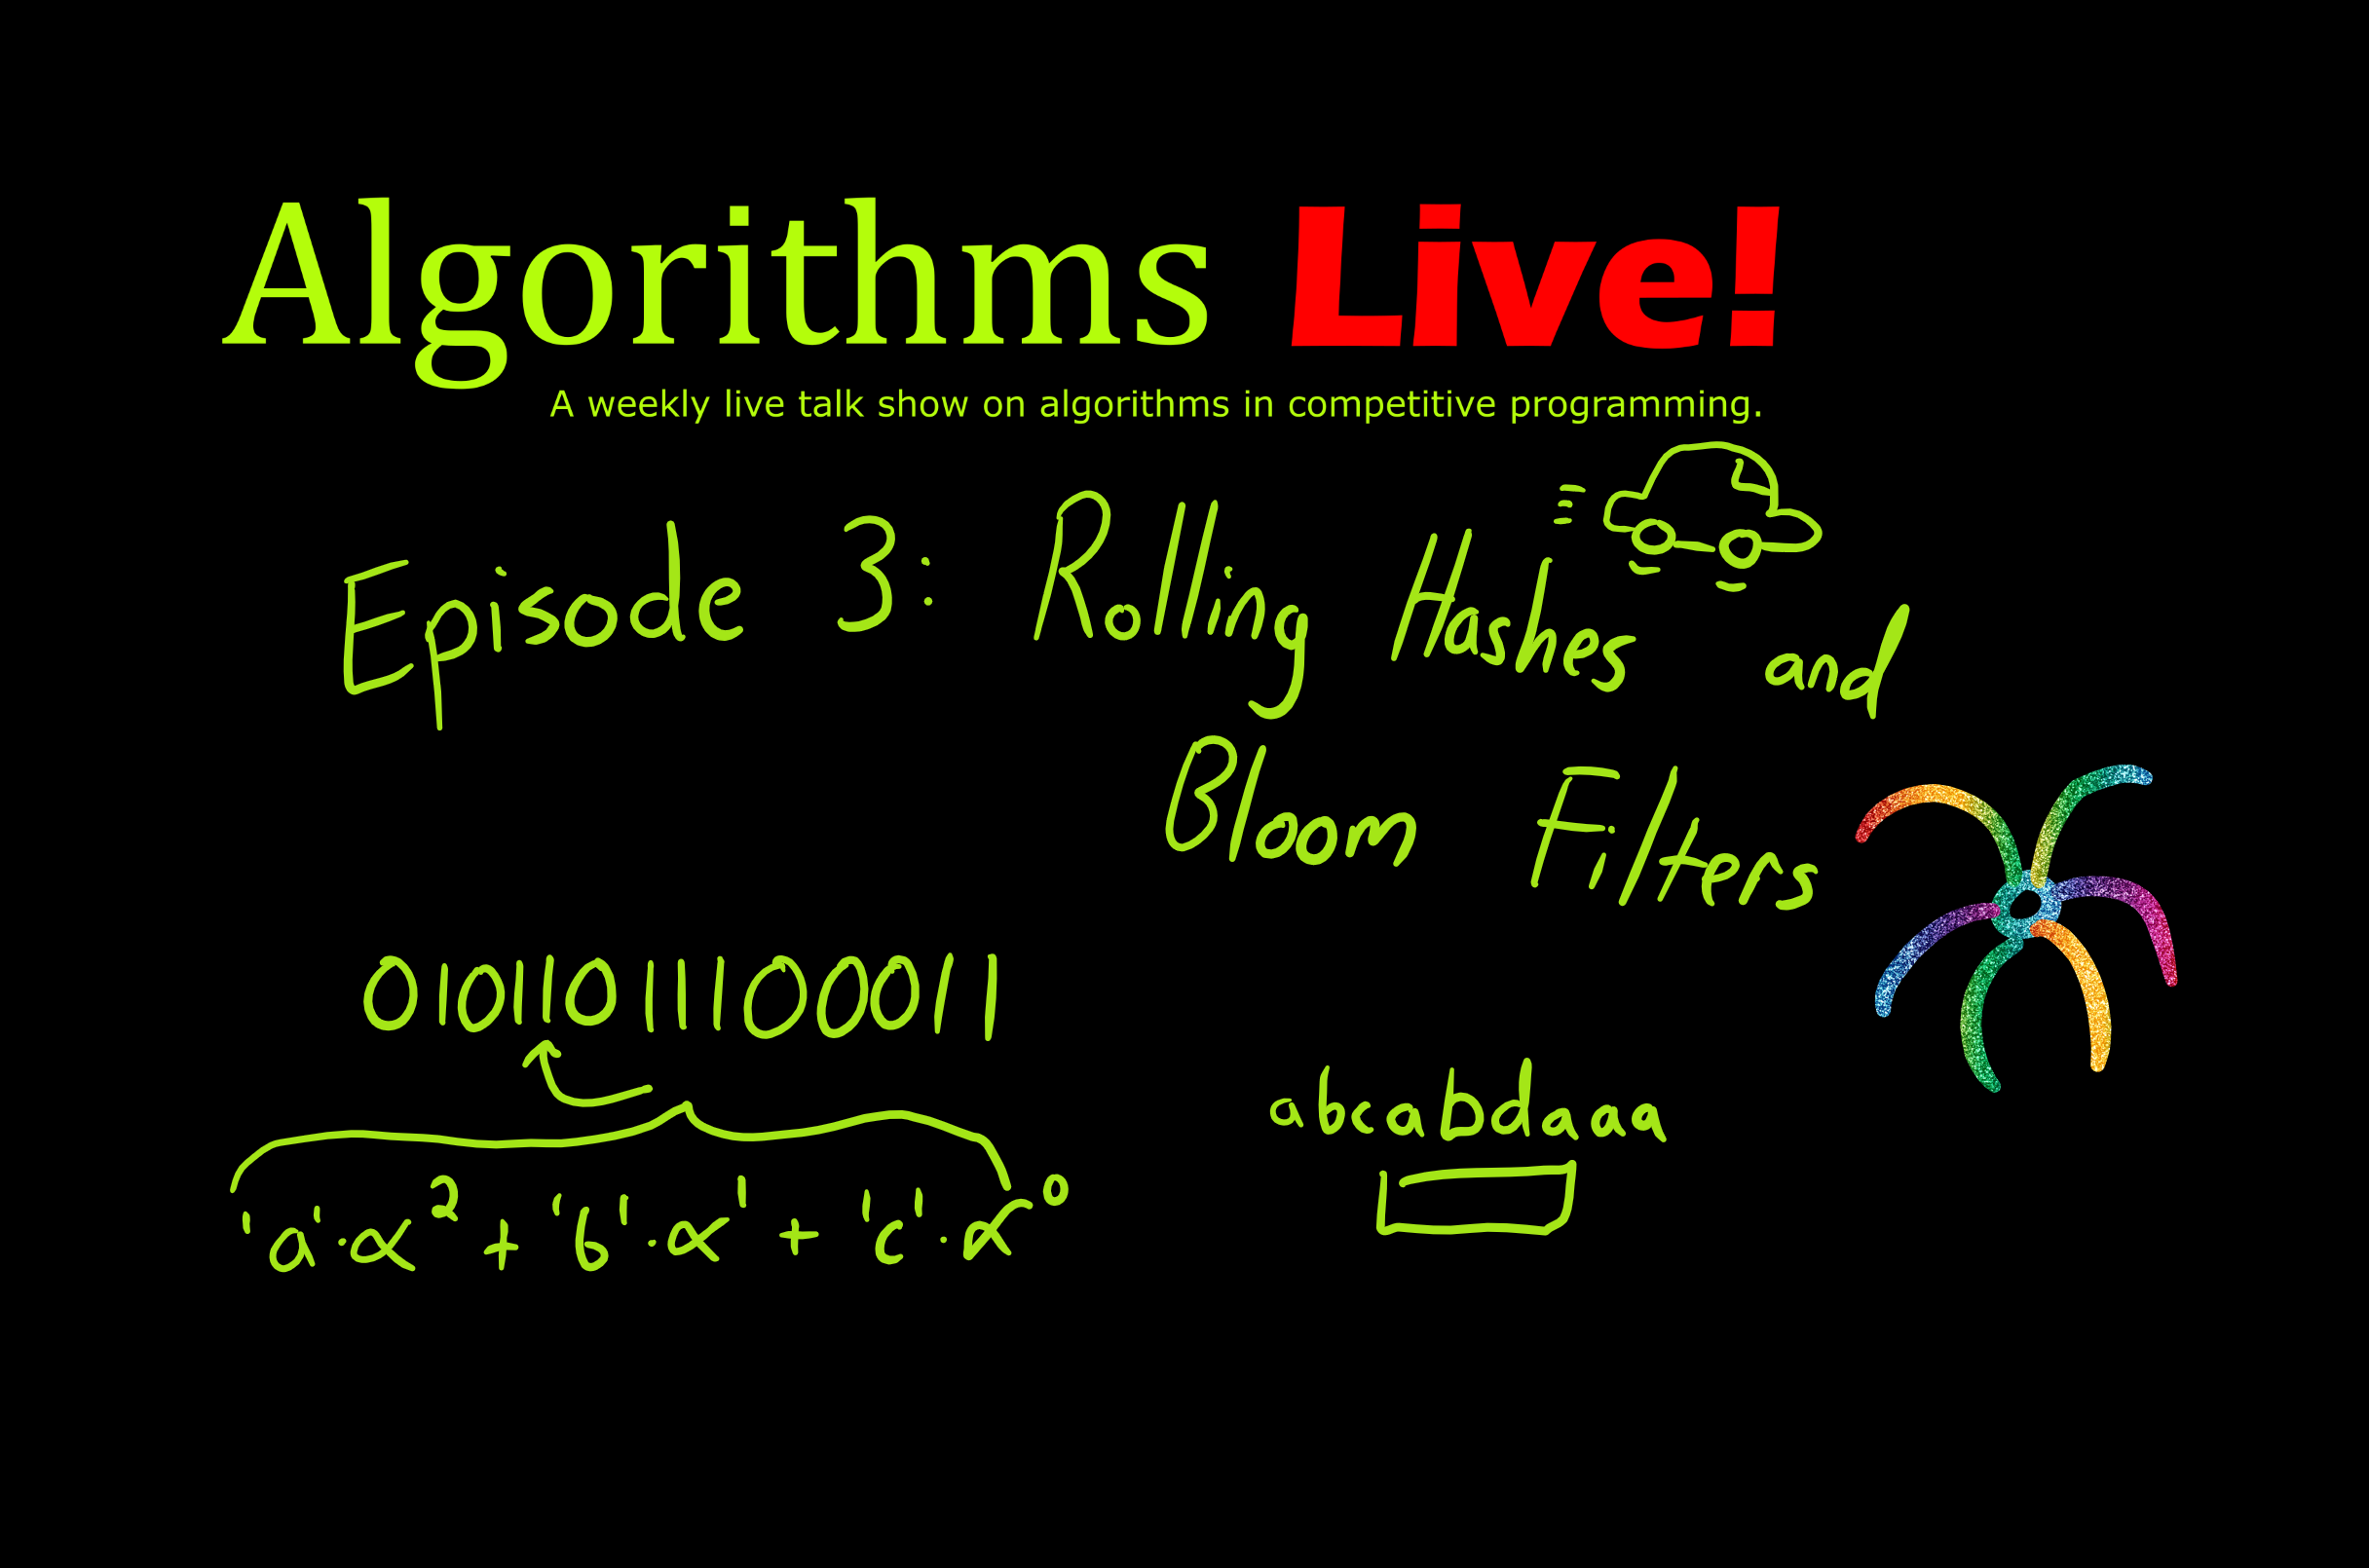 Algorithms Live!
A weekly live talk show on algorithms in competitive programming.
Episode 3: Rolling Hashes and
Bloom Filters
010110111100011
abcabdaaa
'a'·x² + 'b'·x¹ + 'c'·x⁰